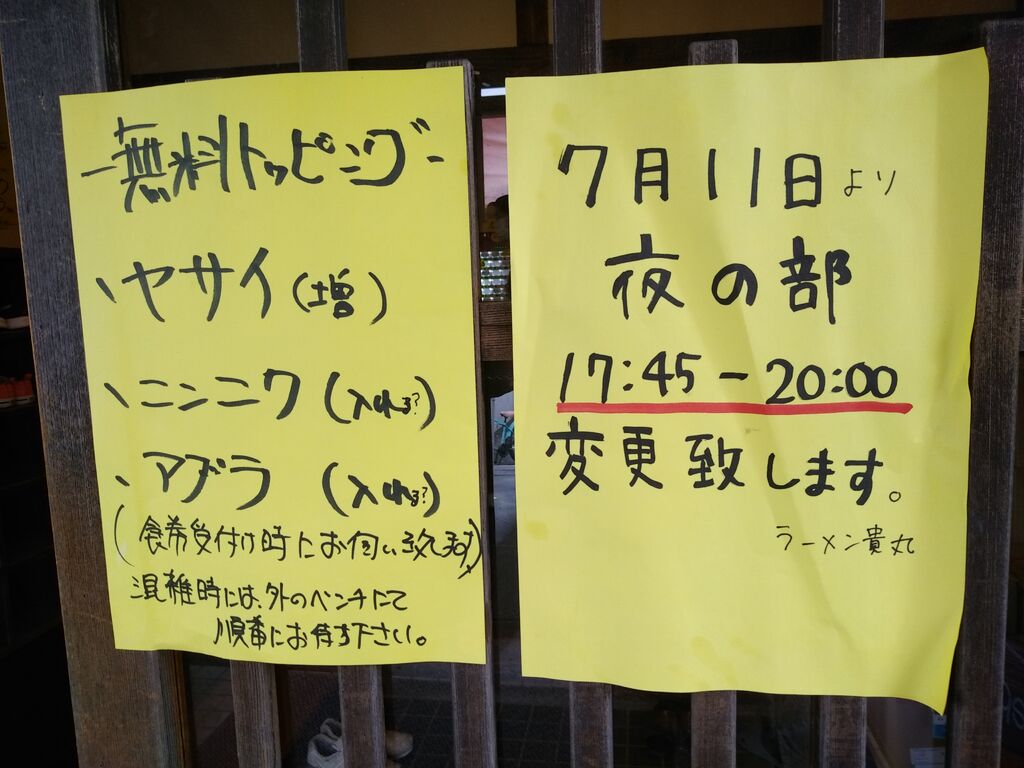 -無料トッピング-
、ヤサイ(増)
、ニンニク(入れる?)
、アブラ(入れる?)
(食券受付け時にお伺い致します)
混雑時には、外のベンチにて
順番にお待ち下さい。
7月11日より
夜の部
17:45-20:00
変更致します。
ラーメン貴丸